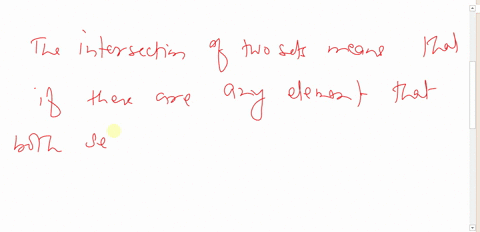 The intersection of two sets means that
if there are any element that
both se